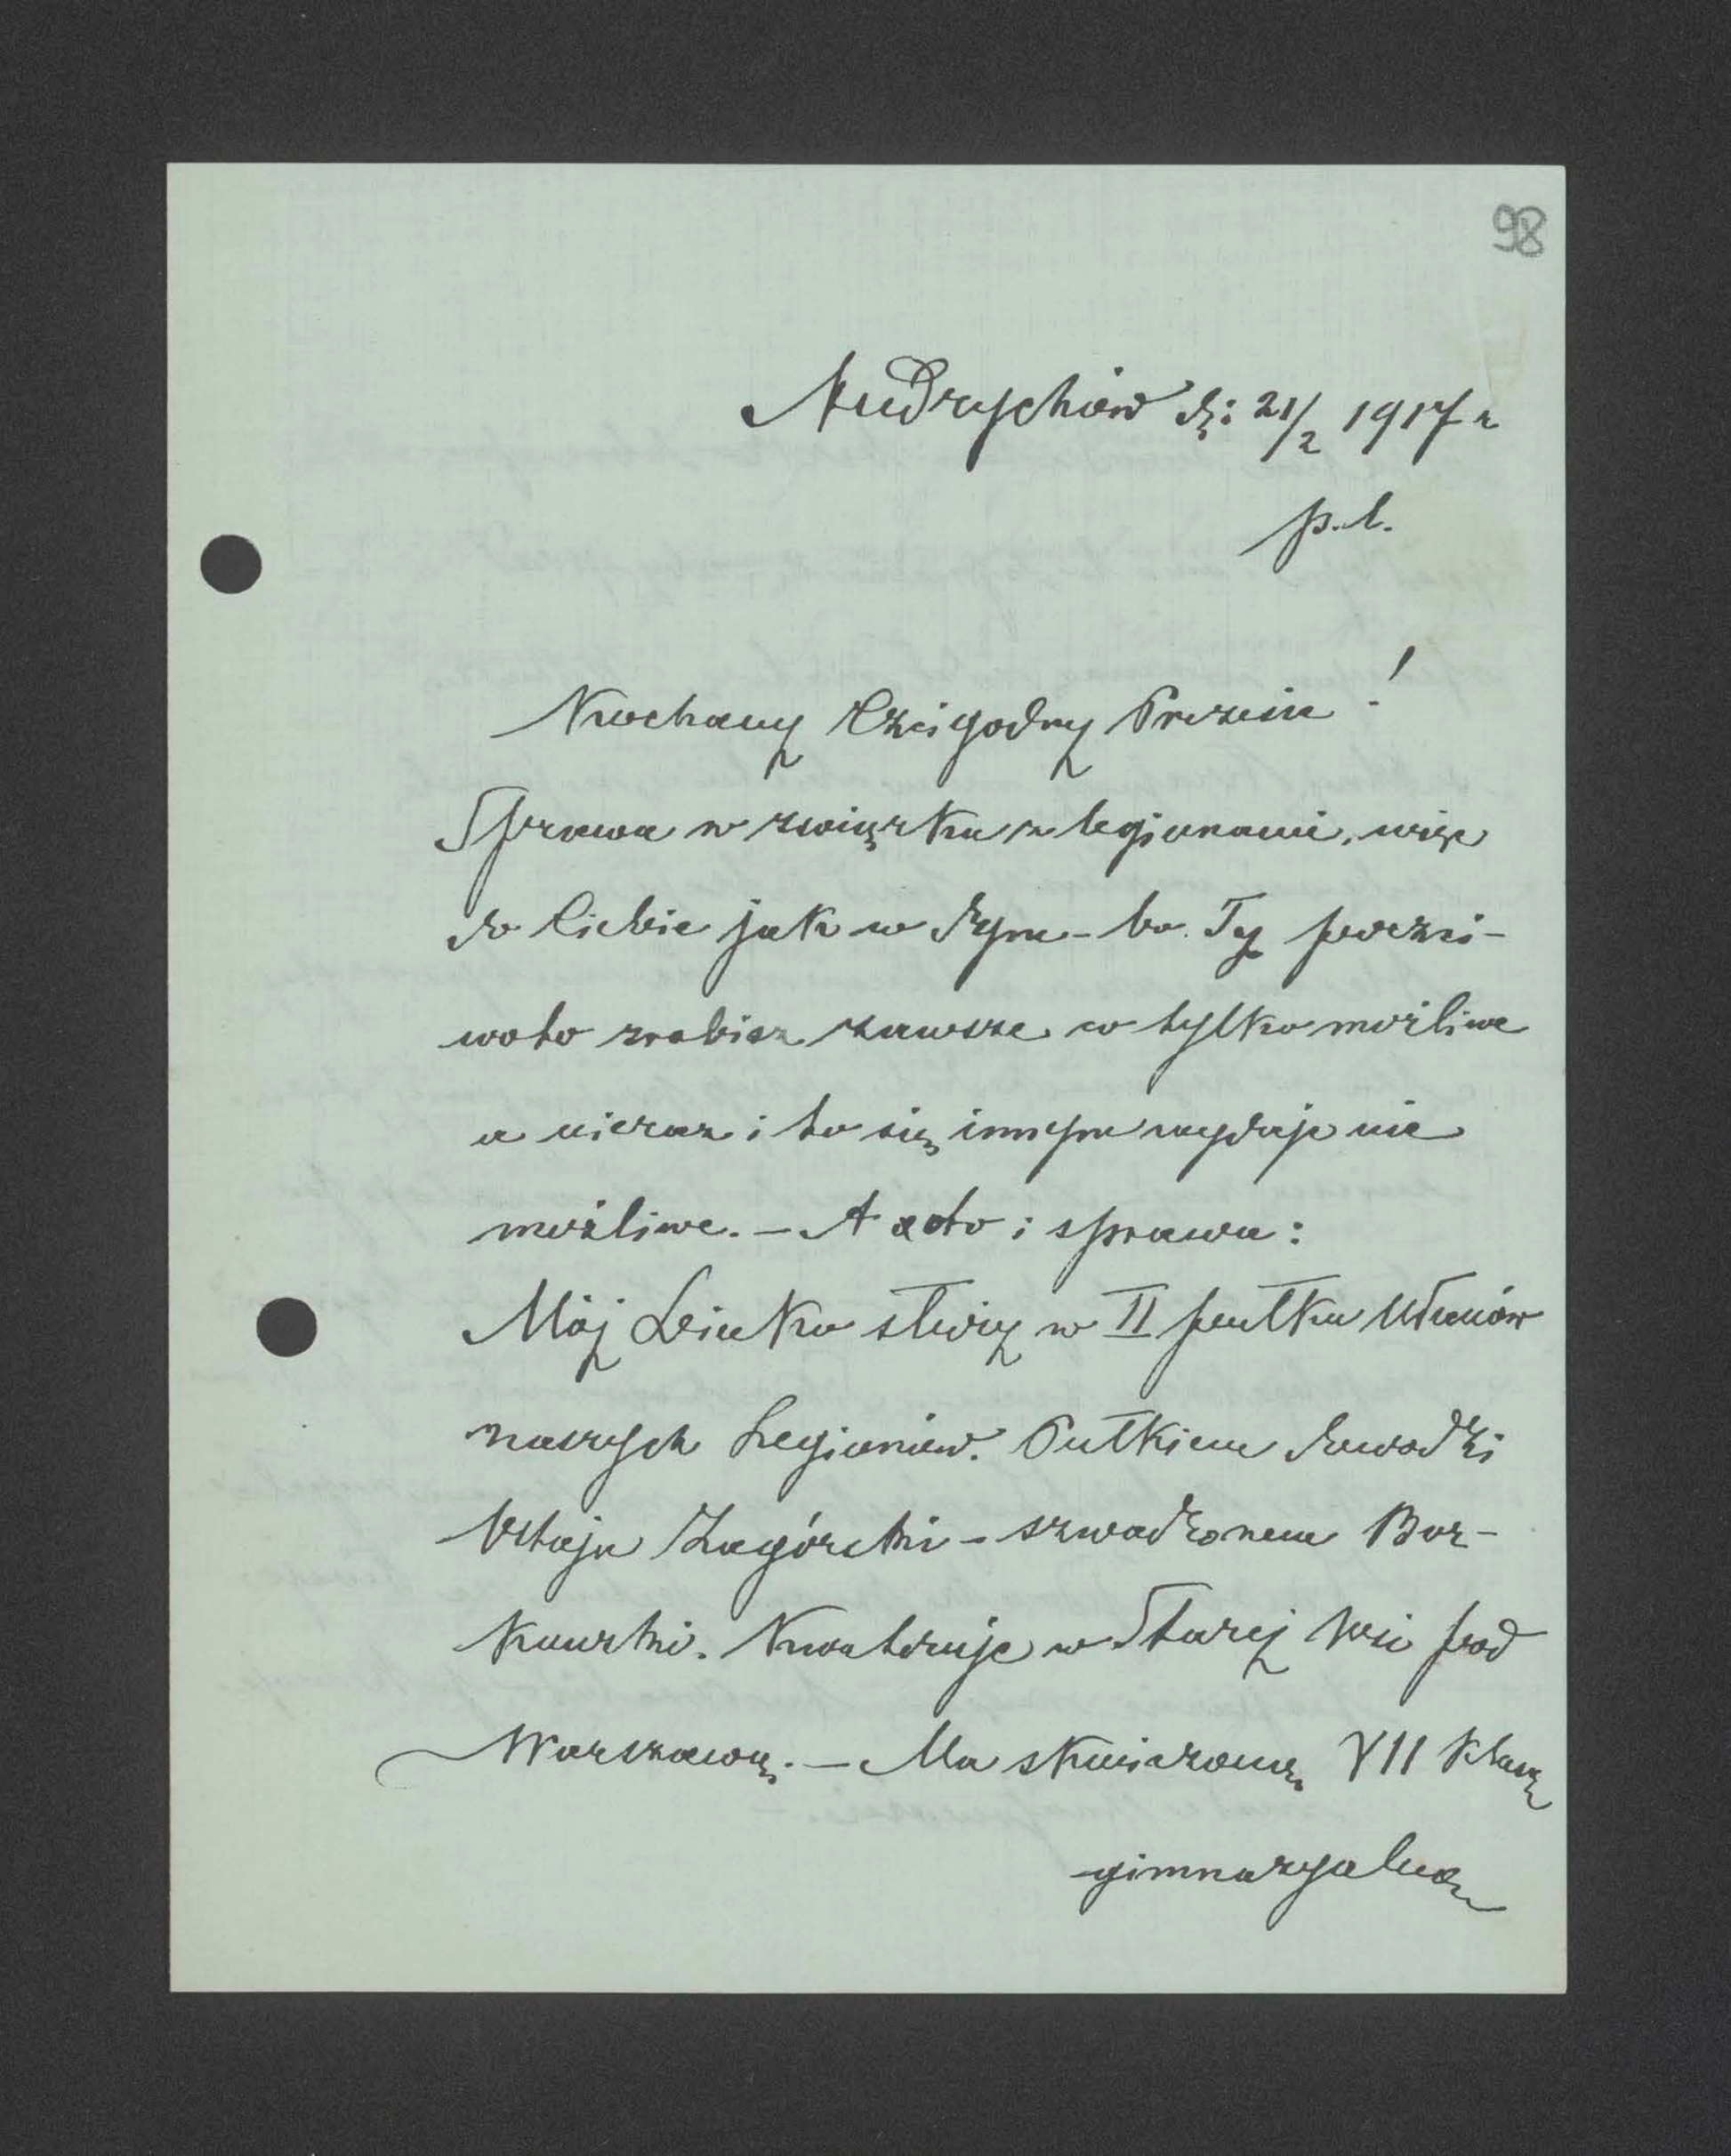 98
Andrychów d: 21/2 1917 r
p. l.
Kochany Czcigodny Prezesie!
Sprawa w związku z legionami, więc
do Ciebie jak w dym - bo Ty poczci-
woto zrobisz zawsze co tylko możliwe
a nieraz i to się innym wydaje nie
możliwe. - A oto i sprawa:
Mój służy w II pułku Ułanów
naszych Legionów. Pułkiem dowodzi
Ostoja Zagórski - szwadronem Bor-
kowski. Kwateruje w Starej Wsi pod
Warszawą. - Ma skończoną VII klasę
gimnazyalną